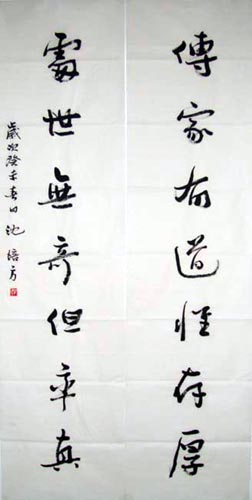 傳家有道惟存厚
處世無奇但率真
歲次癸未春日池培方